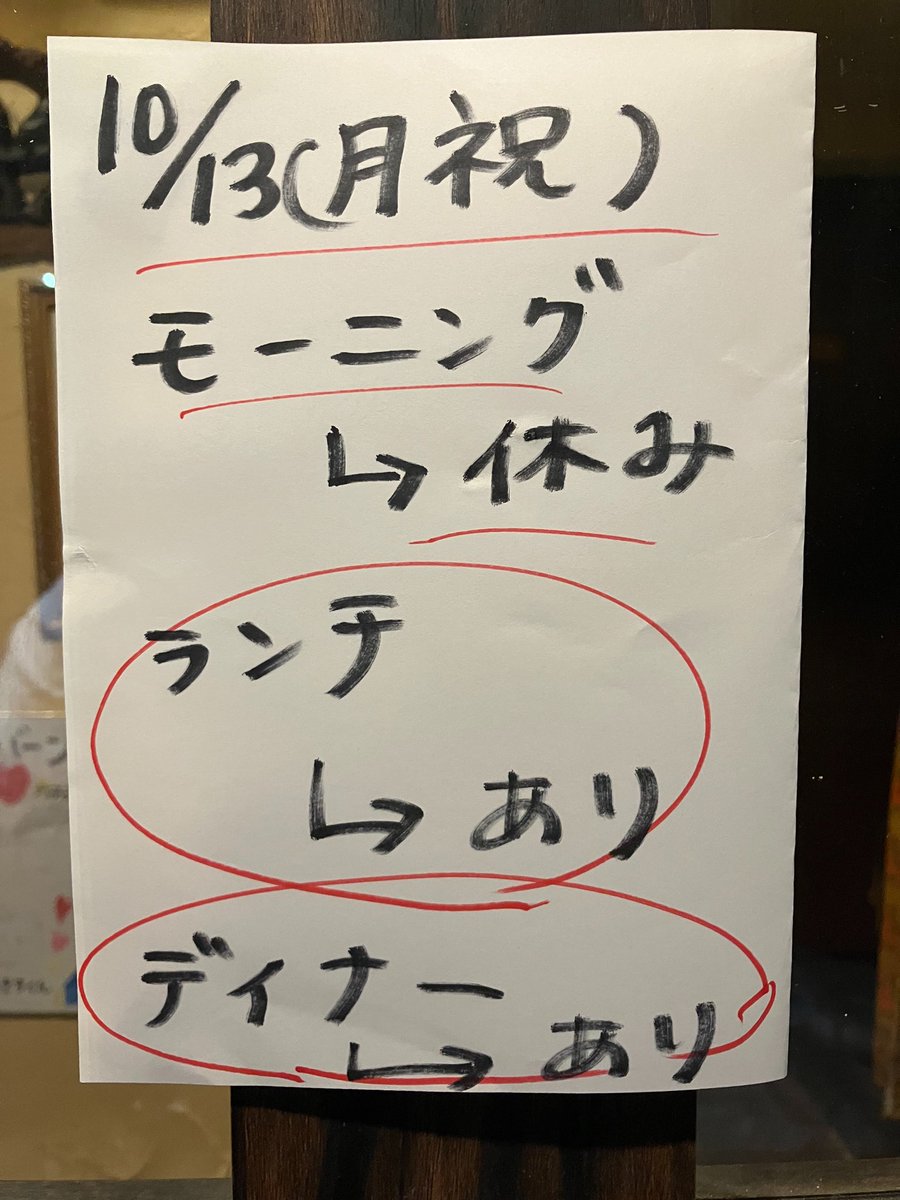 10/13(月祝)
モーニング
↳休み
ランチ
↳あり
ディナー
↳あり
バーン